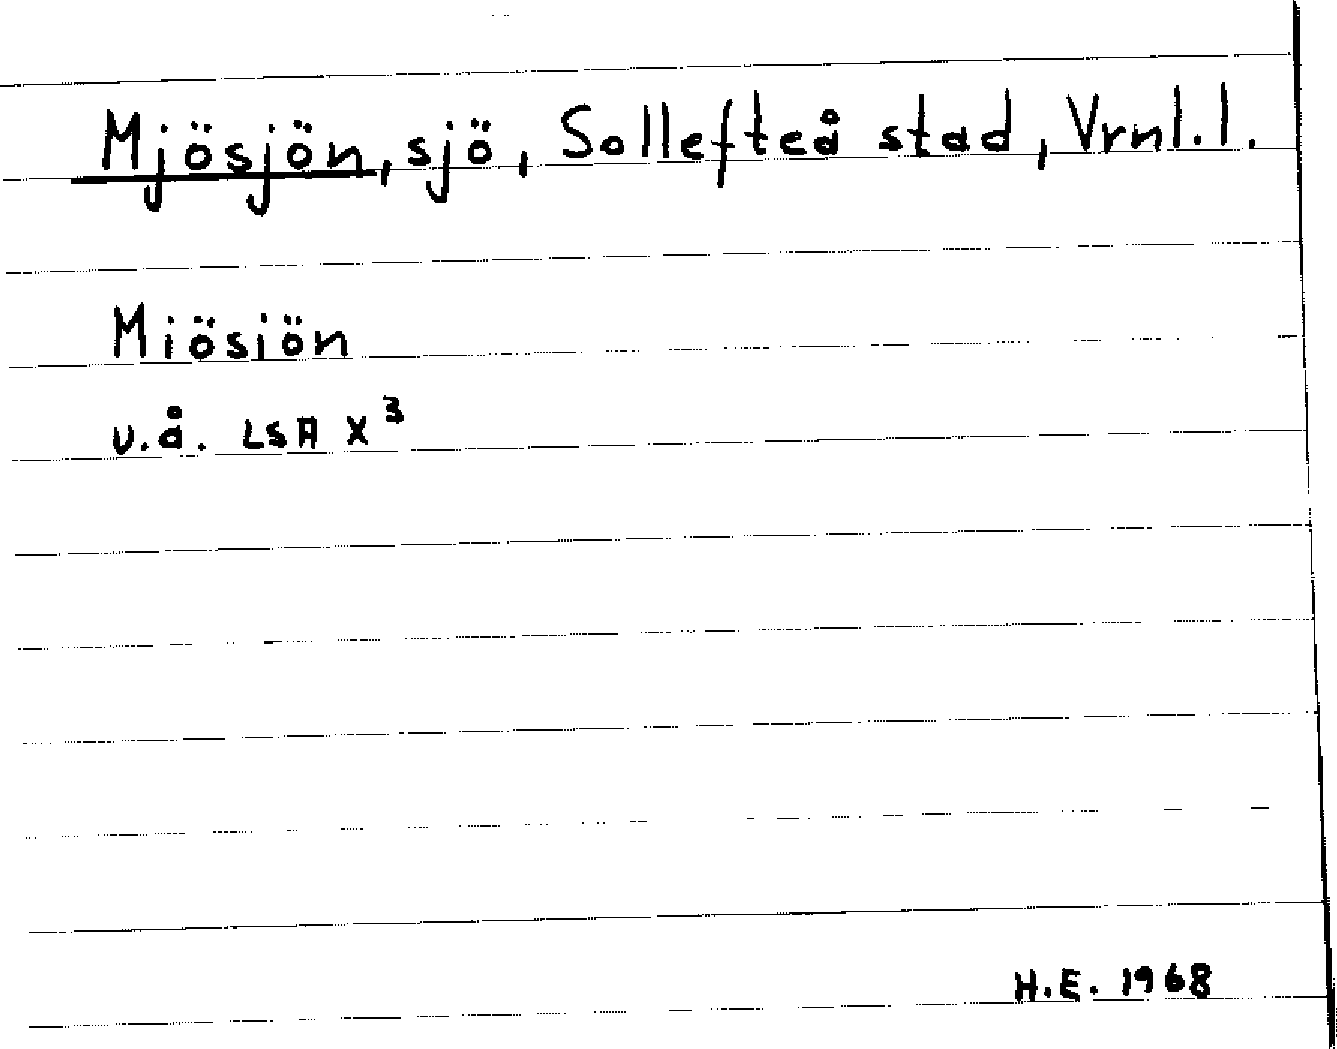 Mjösjön, sjö, Sollefteå stad, Vrnl.l.
Miösiön
u.å. LSA X³
H.E. 1968